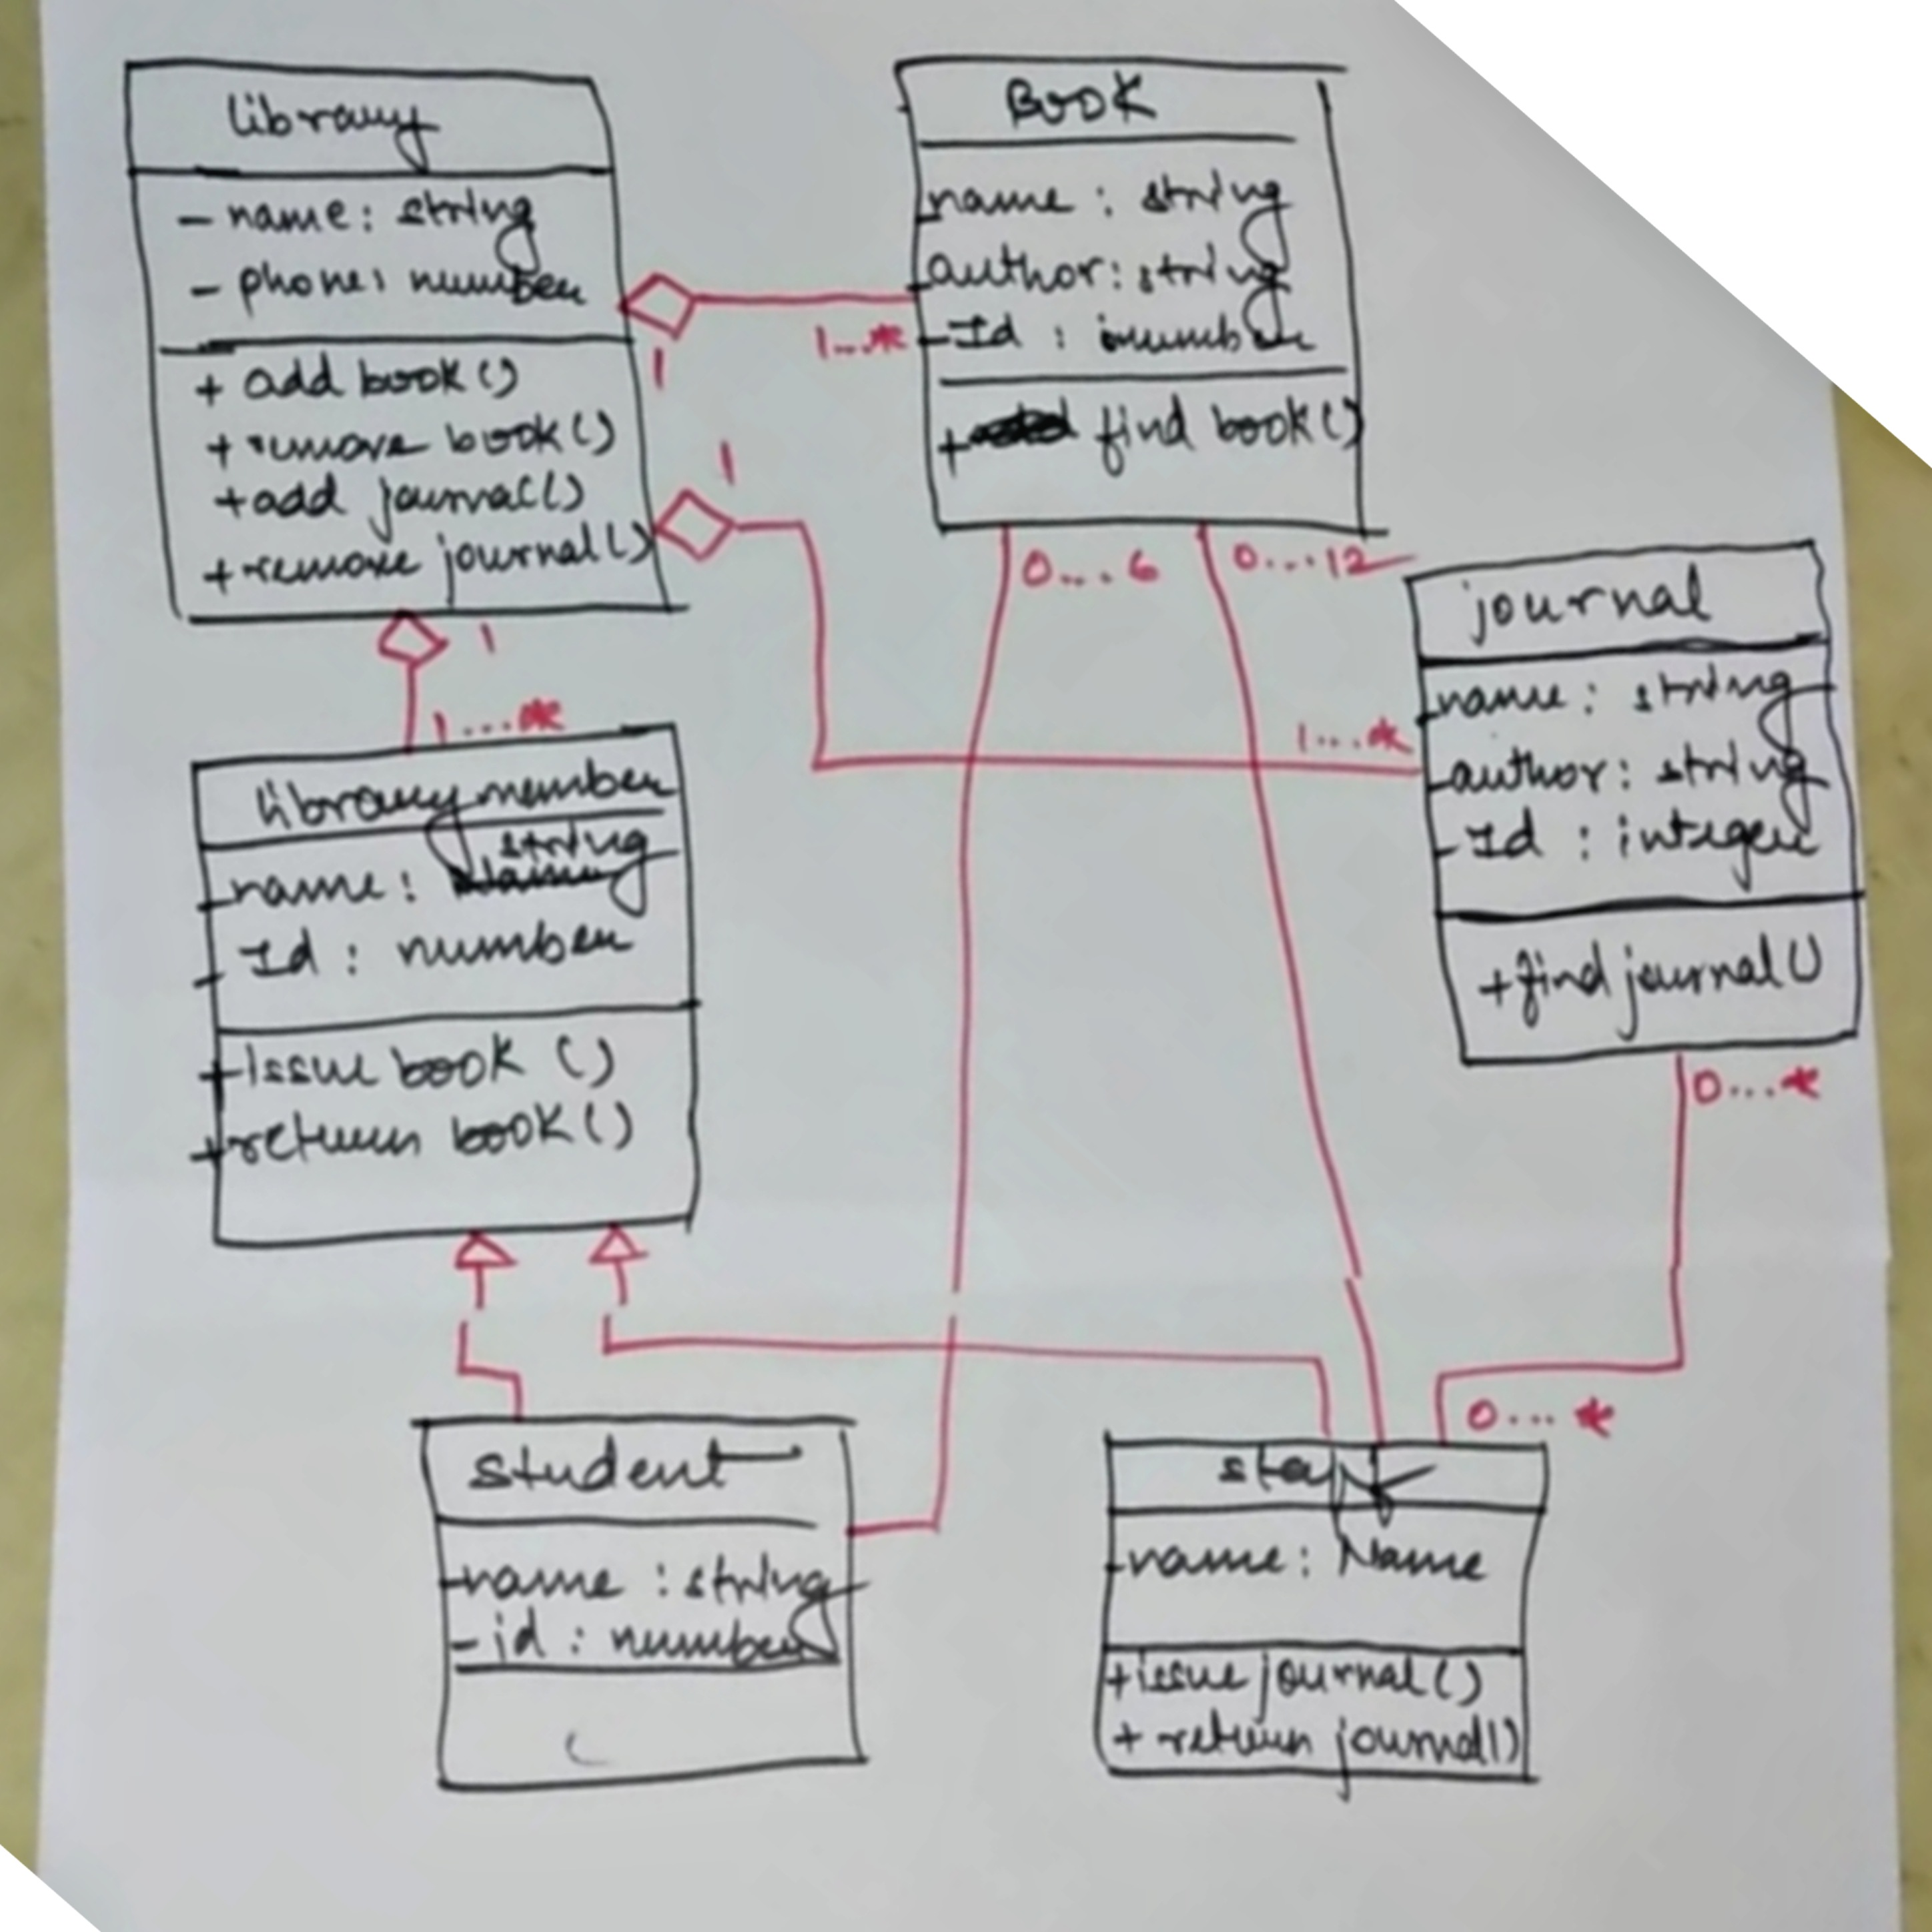 library
- name: string
- phone: number
+ add book()
+ remove book()
+add journal()
+remove journal()
1
1
1
1...*
BOOK
-name: string
-author: string
-Id: number
+ find book()
0...6
0...12
journal
-name: string
-author: string
-Id: integer
+find journal()
1...*
0...*
1...*
library member
-name: string
- Id: number
+issue book ()
+return book()
student
-name: string
-id: number
0...*
staff
-name: Name
+issue journal()
+ return journal()